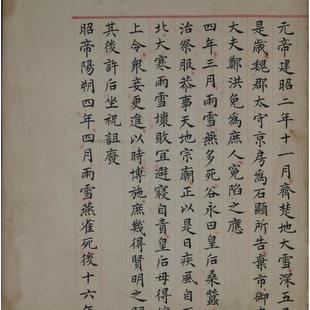 元帝建昭二年十一月齊楚地大雪深五尺
是歲魏郡太守京房為石顯所告棄市御史
大夫鄭洪免為庶人冤陷之應
四年三月雨雪燕多死谷永曰皇后桑蠶
治祭服恭事天地宗廟正以是日疾風自西
北大寒雨雪壞敗宜避寢自責皇后毋得
上令衆妾更進以時博施庶幾得賢明之
其後許后坐祝詛廢
昭帝陽朔四年四月雨雪燕雀死後十六年